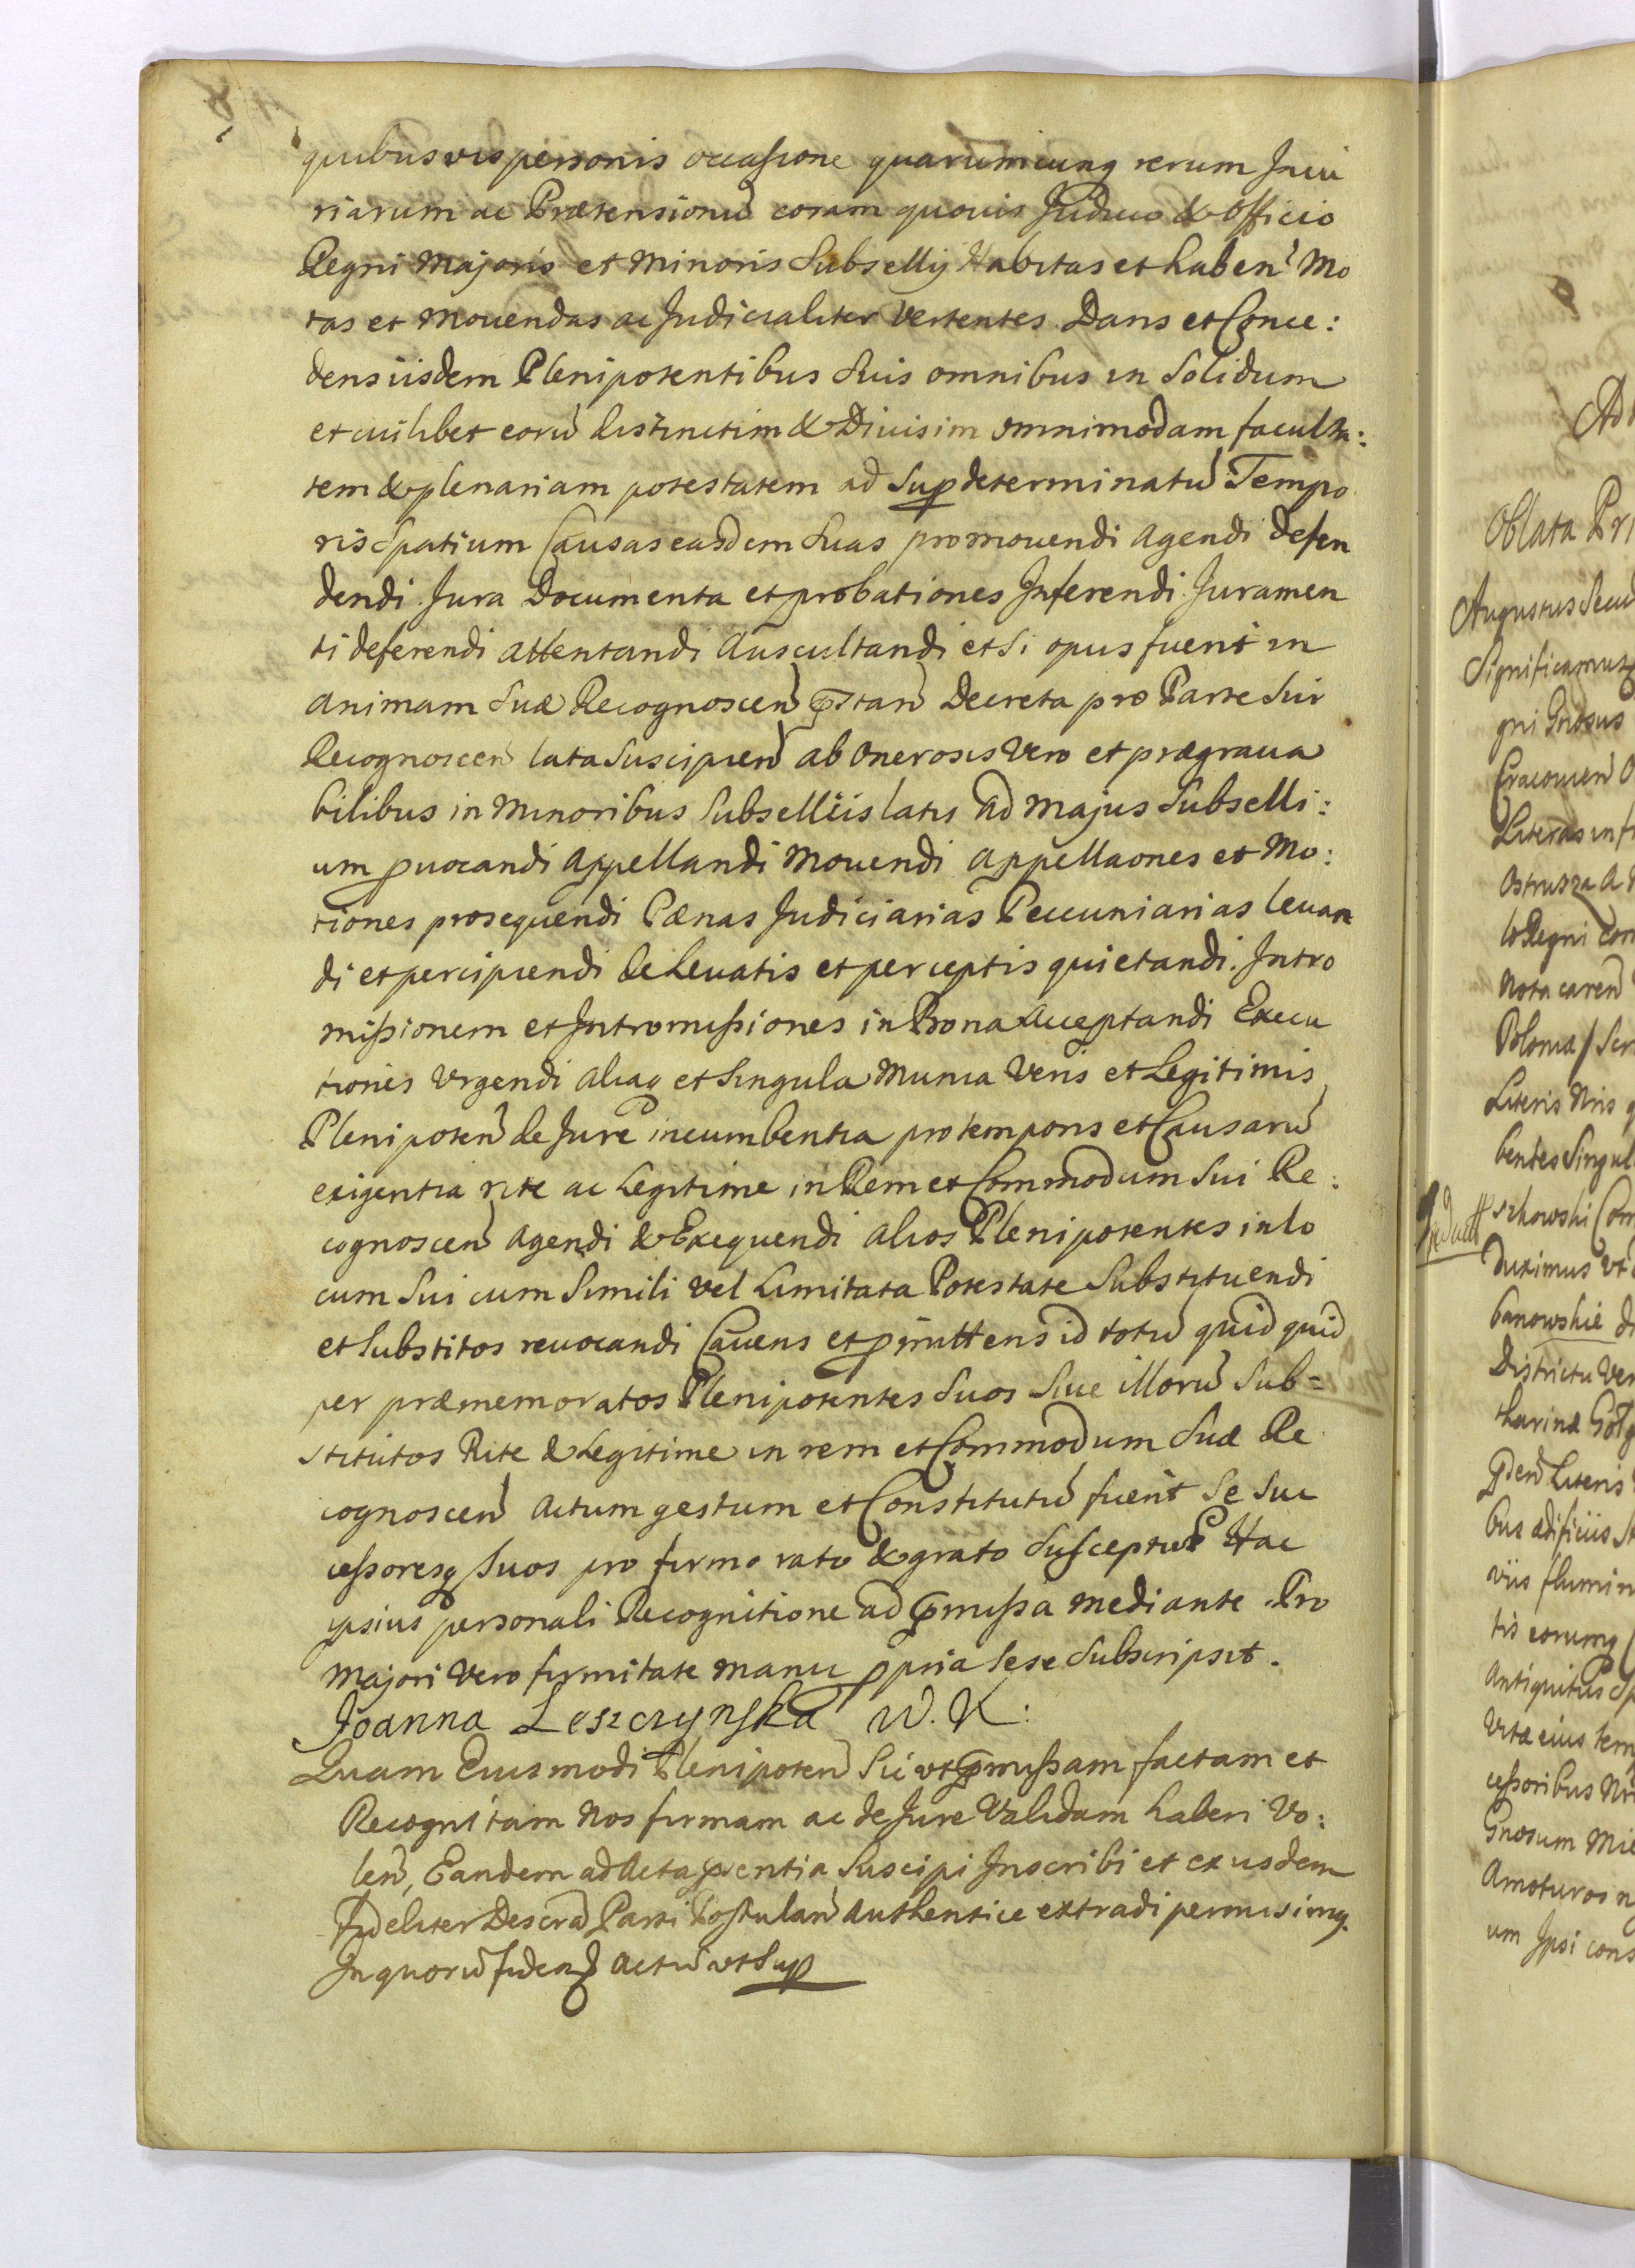 quibusvis personis occasione quarumcunq rerum Iniu
riarum ac Prætensionũ coram quovis Judicio & Officio
Regni Majoris et Minoris Subsellij Habitas et haben̄ Mo
tas et Movendas ac Judicialiter Vertentes. Dans et Conce:
dens iisdem Plenipotentibus Suis omnibus in Solidum
et cuilibet eorũ distinctim & Divisim omnimodam faculta:
tem & plenariam potestatem ad Sup determinatũ Tempo
ris Spatium Causas easdem Suas promovendi Agendi Defen
dendi. Jura Documenta et probationes Inferendi. Juramen
ti deferendi attentandi Auscultandi et Si opus fuerit in
Animam Suæ Recognoscen̄ p̄stan̄ Decreta pro Parte Sui
Recognoscen̄ lata Suscipien̄ ab Onerosis Vero et prægrava
bilibus in Minoribus Subselliis latis ad Majus Subselli:
um pvocandi Appellandi Movendi Appellaones et Mo:
tiones prosequendi Pœnas Judiciarias Peccuniarias levan
di et percipiendi de Levatis et perceptis quietandi. Intro
missionem et Intromissiones in Bona Acceptandi Execu
tiones Vrgendi Aliaq et Singula Munia Veris et Legitimis
Plenipoten̄ de Jure incumbentia pro temporis et Causarũ
exigentia rite ac Legitime in Rem et Commodum Sui Re:
cognoscen̄ Agendi & Exequendi Alios Plenipotentes in lo
cum Sui cum Simili vel Limitata Potestate Substituendi
et Substitos revocandi Cavens et pmittens id totũ quid quid
per præmemoratos Plenipotentes Suos Sive illorũ Sub=
stitutos Rite & Legitime in rem et Commodum Suæ Re
cognoscen̄ Actum gestum et Constitutũ fuerit Se Suc
cessoresq Suos pro firmo rato & grato Suscepturũ Hac
ipsius personali Recognitione ad p̄missa mediante. Pro
Majori Vero firmitate manu ppria Sese Subscripsit.
Joanna Leszczynska W. K:
Quam Eiusmodi Plenipoten̄ Sic vt p̄missam factam et
Recognitam Nos firmam ac de Jure Validam haberi Vo:
len̄, Eandem ad Acta p̄sentia Suscipi Inscribi et ex iisdem
fideliter Descrā Parti Postulan̄ Authentice extradi permisimq.
In quorũ fidem Actũ vt Sup
Oblata
Augustus
Significamusq
gni
Cracovien̄
Literas
Ostrusza
Regni
Nota caren̄
Polonia
Literis Nris
bentes Singul
szkowski Com
Duximus Vt
banowskie
Districtu
tharinæ
Literis
bus ædificiis
viis flumin
tis eorumq
Antiquitus
Vitæ eius tem
cessoribus
Gnosum
Amoturos
um Ipsi cons